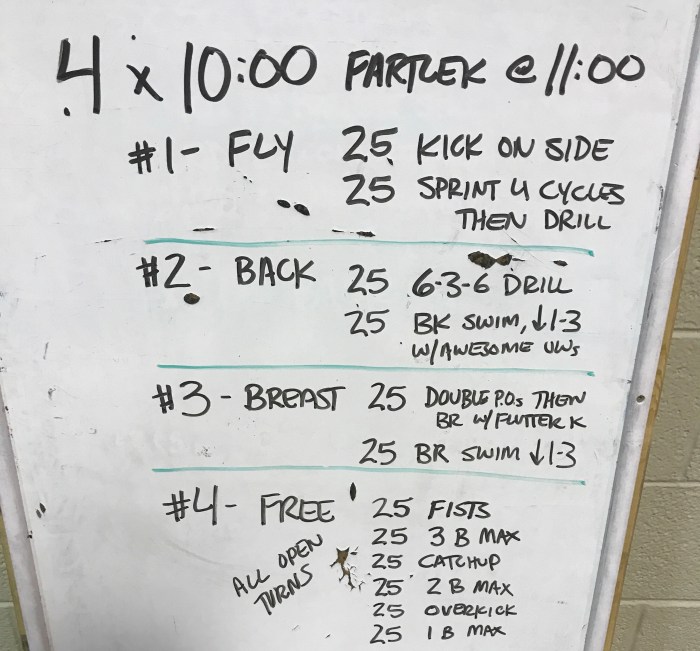 4 x 10:00 FARTLEK @ 11:00
#1- FLY 25 KICK ON SIDE
25 SPRINT 4 CYCLES
THEN DRILL
#2- BACK 25 6-3-6 DRILL
25 BK SWIM, ↓1-3
W/AWESOME UWs
#3- BREAST 25 DOUBLE P.O.s THEN
BR W/ FLUTTER K
25 BR SWIM ↓1-3
#4- FREE 25 FISTS
25 3 B MAX
ALL OPEN
TURNS
25 CATCHUP
25 2 B MAX
25 OVERKICK
25 1 B MAX